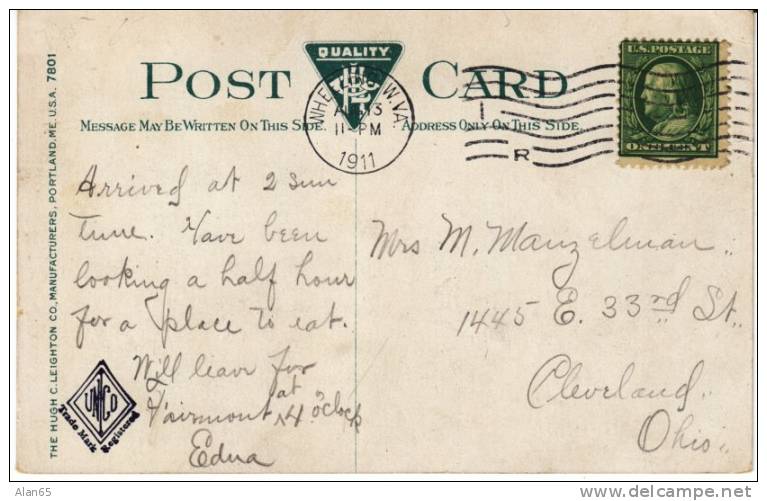 THE HUGH C. LEIGHTON CO., MANUFACTURERS, PORTLAND, ME. U.S.A. 7801
QUALITY
POST CARD
MESSAGE MAY BE WRITTEN ON THIS SIDE.
ADDRESS ONLY ON THIS SIDE.
WHEELING W.VA.
13
11 PM
1911
1
R
U.S. POSTAGE
ONE CENT
Arrived at 2 Sun
time. Have been
looking a half hour
for a place to eat.
Will leave for
Fairmont at 4 o'clock
Edna
Mrs M. Manzelman
1445 E. 33rd St.
Cleveland,
Ohio.
UNICO
Trade Mark Registered
Alan65
www.delcampe.net